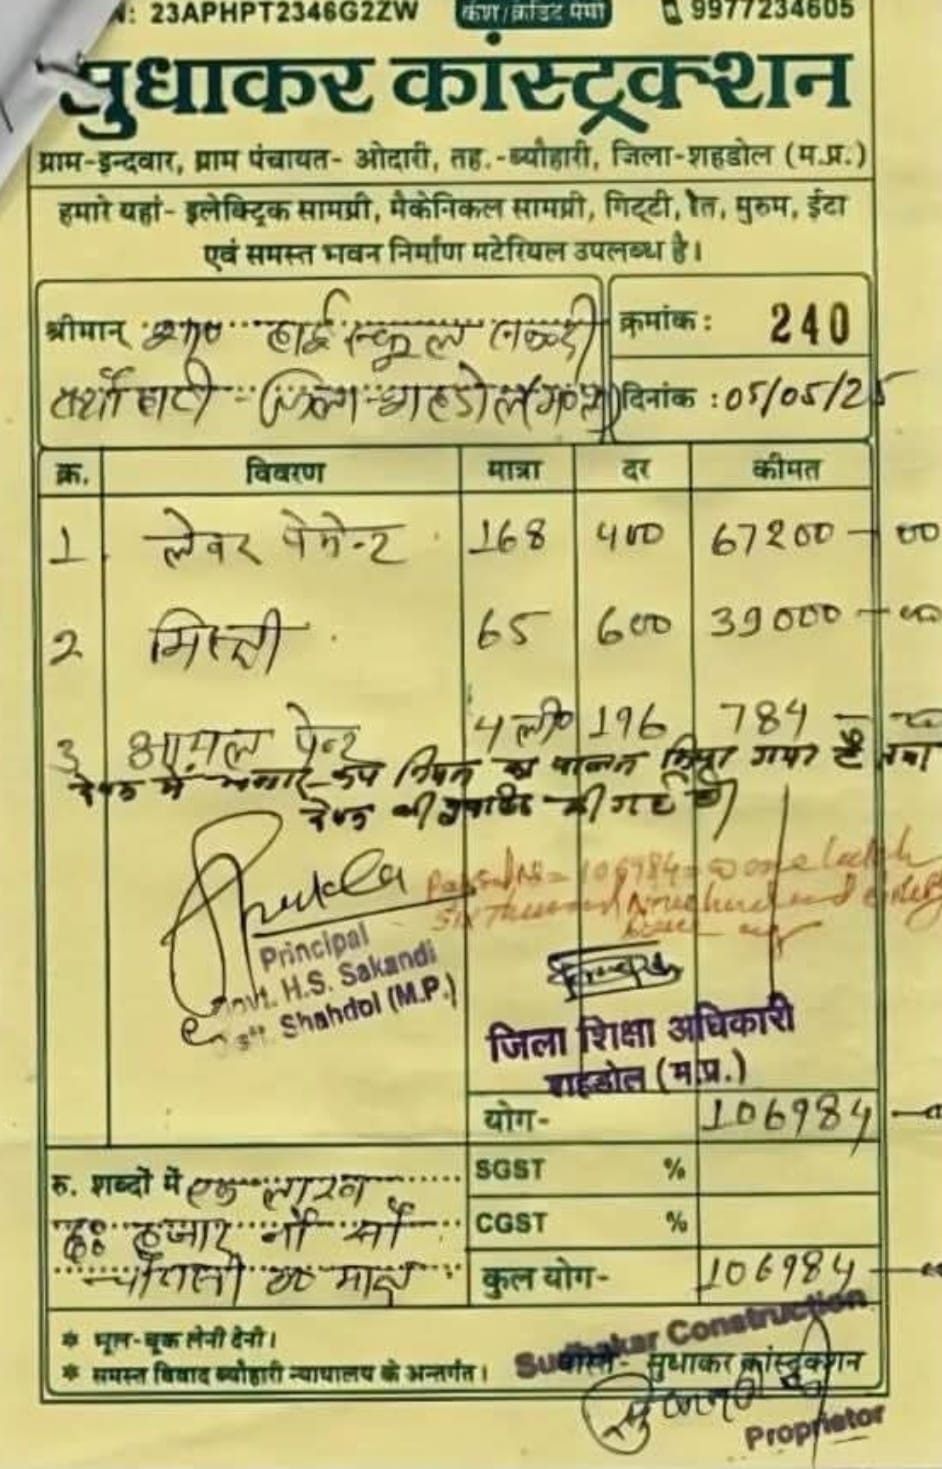 N: 23APHPT2346G2ZW कैश/क्रेडिट मेमो 9977234605
सुधाकर कांस्ट्रक्शन
ग्राम-इन्दवार, ग्राम पंचायत- ओदारी, तह.-ब्यौहारी, जिला-शहडोल (म.प्र.)
हमारे यहां- इलेक्ट्रिक सामग्री, मैकेनिकल सामग्री, गिट्टी, रेत, मुरुम, ईटा
एवं समस्त भवन निर्माण मटेरियल उपलब्ध है।
श्रीमान् हाई स्कूल
क्रमांक : 240
जिला-शहडोल
दिनांक : 05/05/25
क्र. विवरण मात्रा दर कीमत
1 लेवर पेमेन्ट 168 400 67200 - 00
2 मिस्त्री 65 600 39000 - 00
3 आयल पेन्ट 4 ली० 196 784 -
देयक में भण्डार-क्रय नियम का पालन किया गया है तथा
देयक की की गई थी
Passed Rs = 106984 = 00 one lakh
six thousand Nine hundred eighty
four
Principal
Govt. H.S. Sakandi
Distt. Shahdol (M.P.)
जिला शिक्षा अधिकारी
शहडोल (म.प्र.)
योग- 106984
रु. शब्दों में एक लाख
SGST %
छः हजार नौ सौ
CGST %
चौरासी रू मात्र
कुल योग- 106984
Sudhakar Construction
* भूल-चूक लेनी देनी।
* समस्त विवाद ब्यौहारी न्यायालय के अन्तर्गत।
वास्ते- सुधाकर कांस्ट्रक्शन
Proprietor